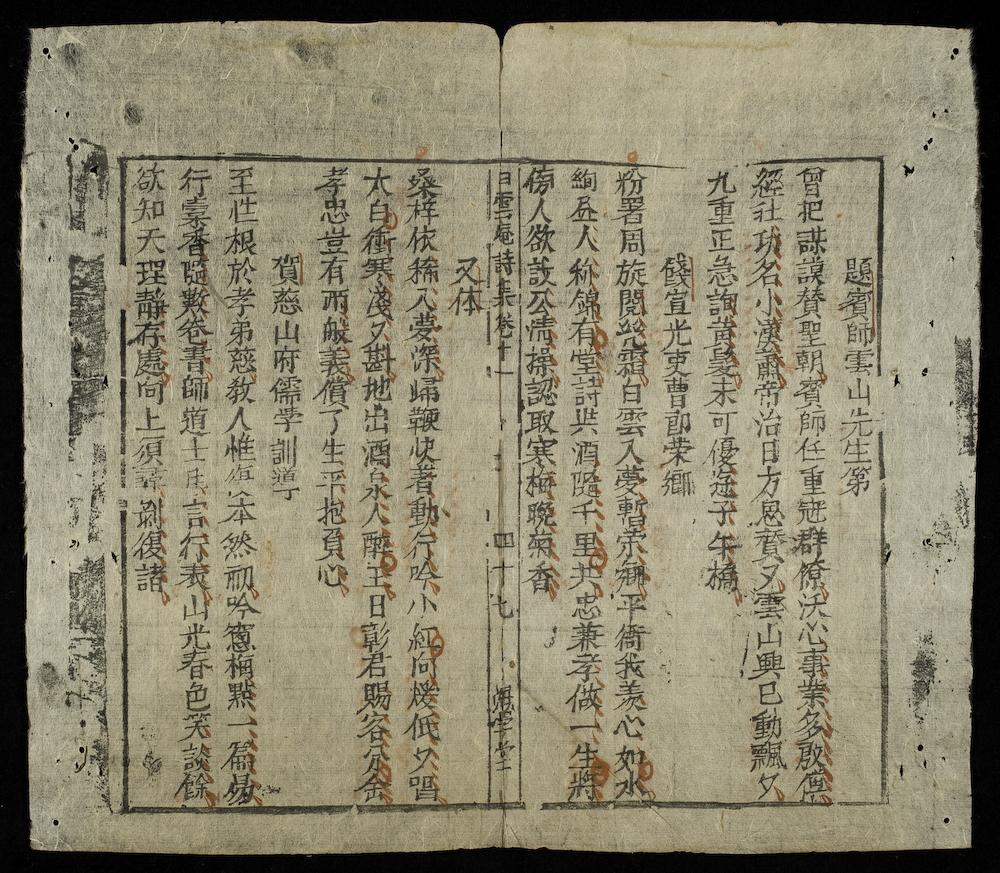 題賓師雲山先生第
曾把謀謨贊聖朝賓師任重冠群僚沃心事業多殷傅
經社功名小漢蕭帝治日方思賚夕雲山興已動飄夕
九重正急詢黃髮未可優逰子午橋
餞宣光吏曹郎荣鄉
粉署周旋閱光霜白雲入夢暫荣鄉平衢我羡心如水
絢昼人称錦有堂詩共酒隨千里共忠兼孝做一生將
傍人欲說公清操認取寒梅晚菊香
白雲庵詩集卷十一 四十九 學堂
又体
桑梓依稀入夢深歸鞭快著動行吟小紅向煖低夕唱
太白衝寒淺夕斟地出酒泉人醉玉日彰君賜客分金
孝忠豈有兩般義償了生平抱負心
賀慈山府儒學訓導丁
至性根於孝弟慈教人惟本然初吟窻梅點一篇易
行橐香隨數卷書師道士民言行表山光春色笑談餘
欲知天理靜存處向上須 剝復諸